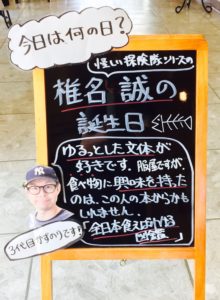 今日は何の日?
怪しい探険隊シリーズの
椎名 誠の
誕生日
ゆるっとした文体が
好きです。服属ですが
食べ物に興味を持った
のは、この人の本からかも
しれません。
「全日本食えばわかる
図鑑」
3代目かずのりです!